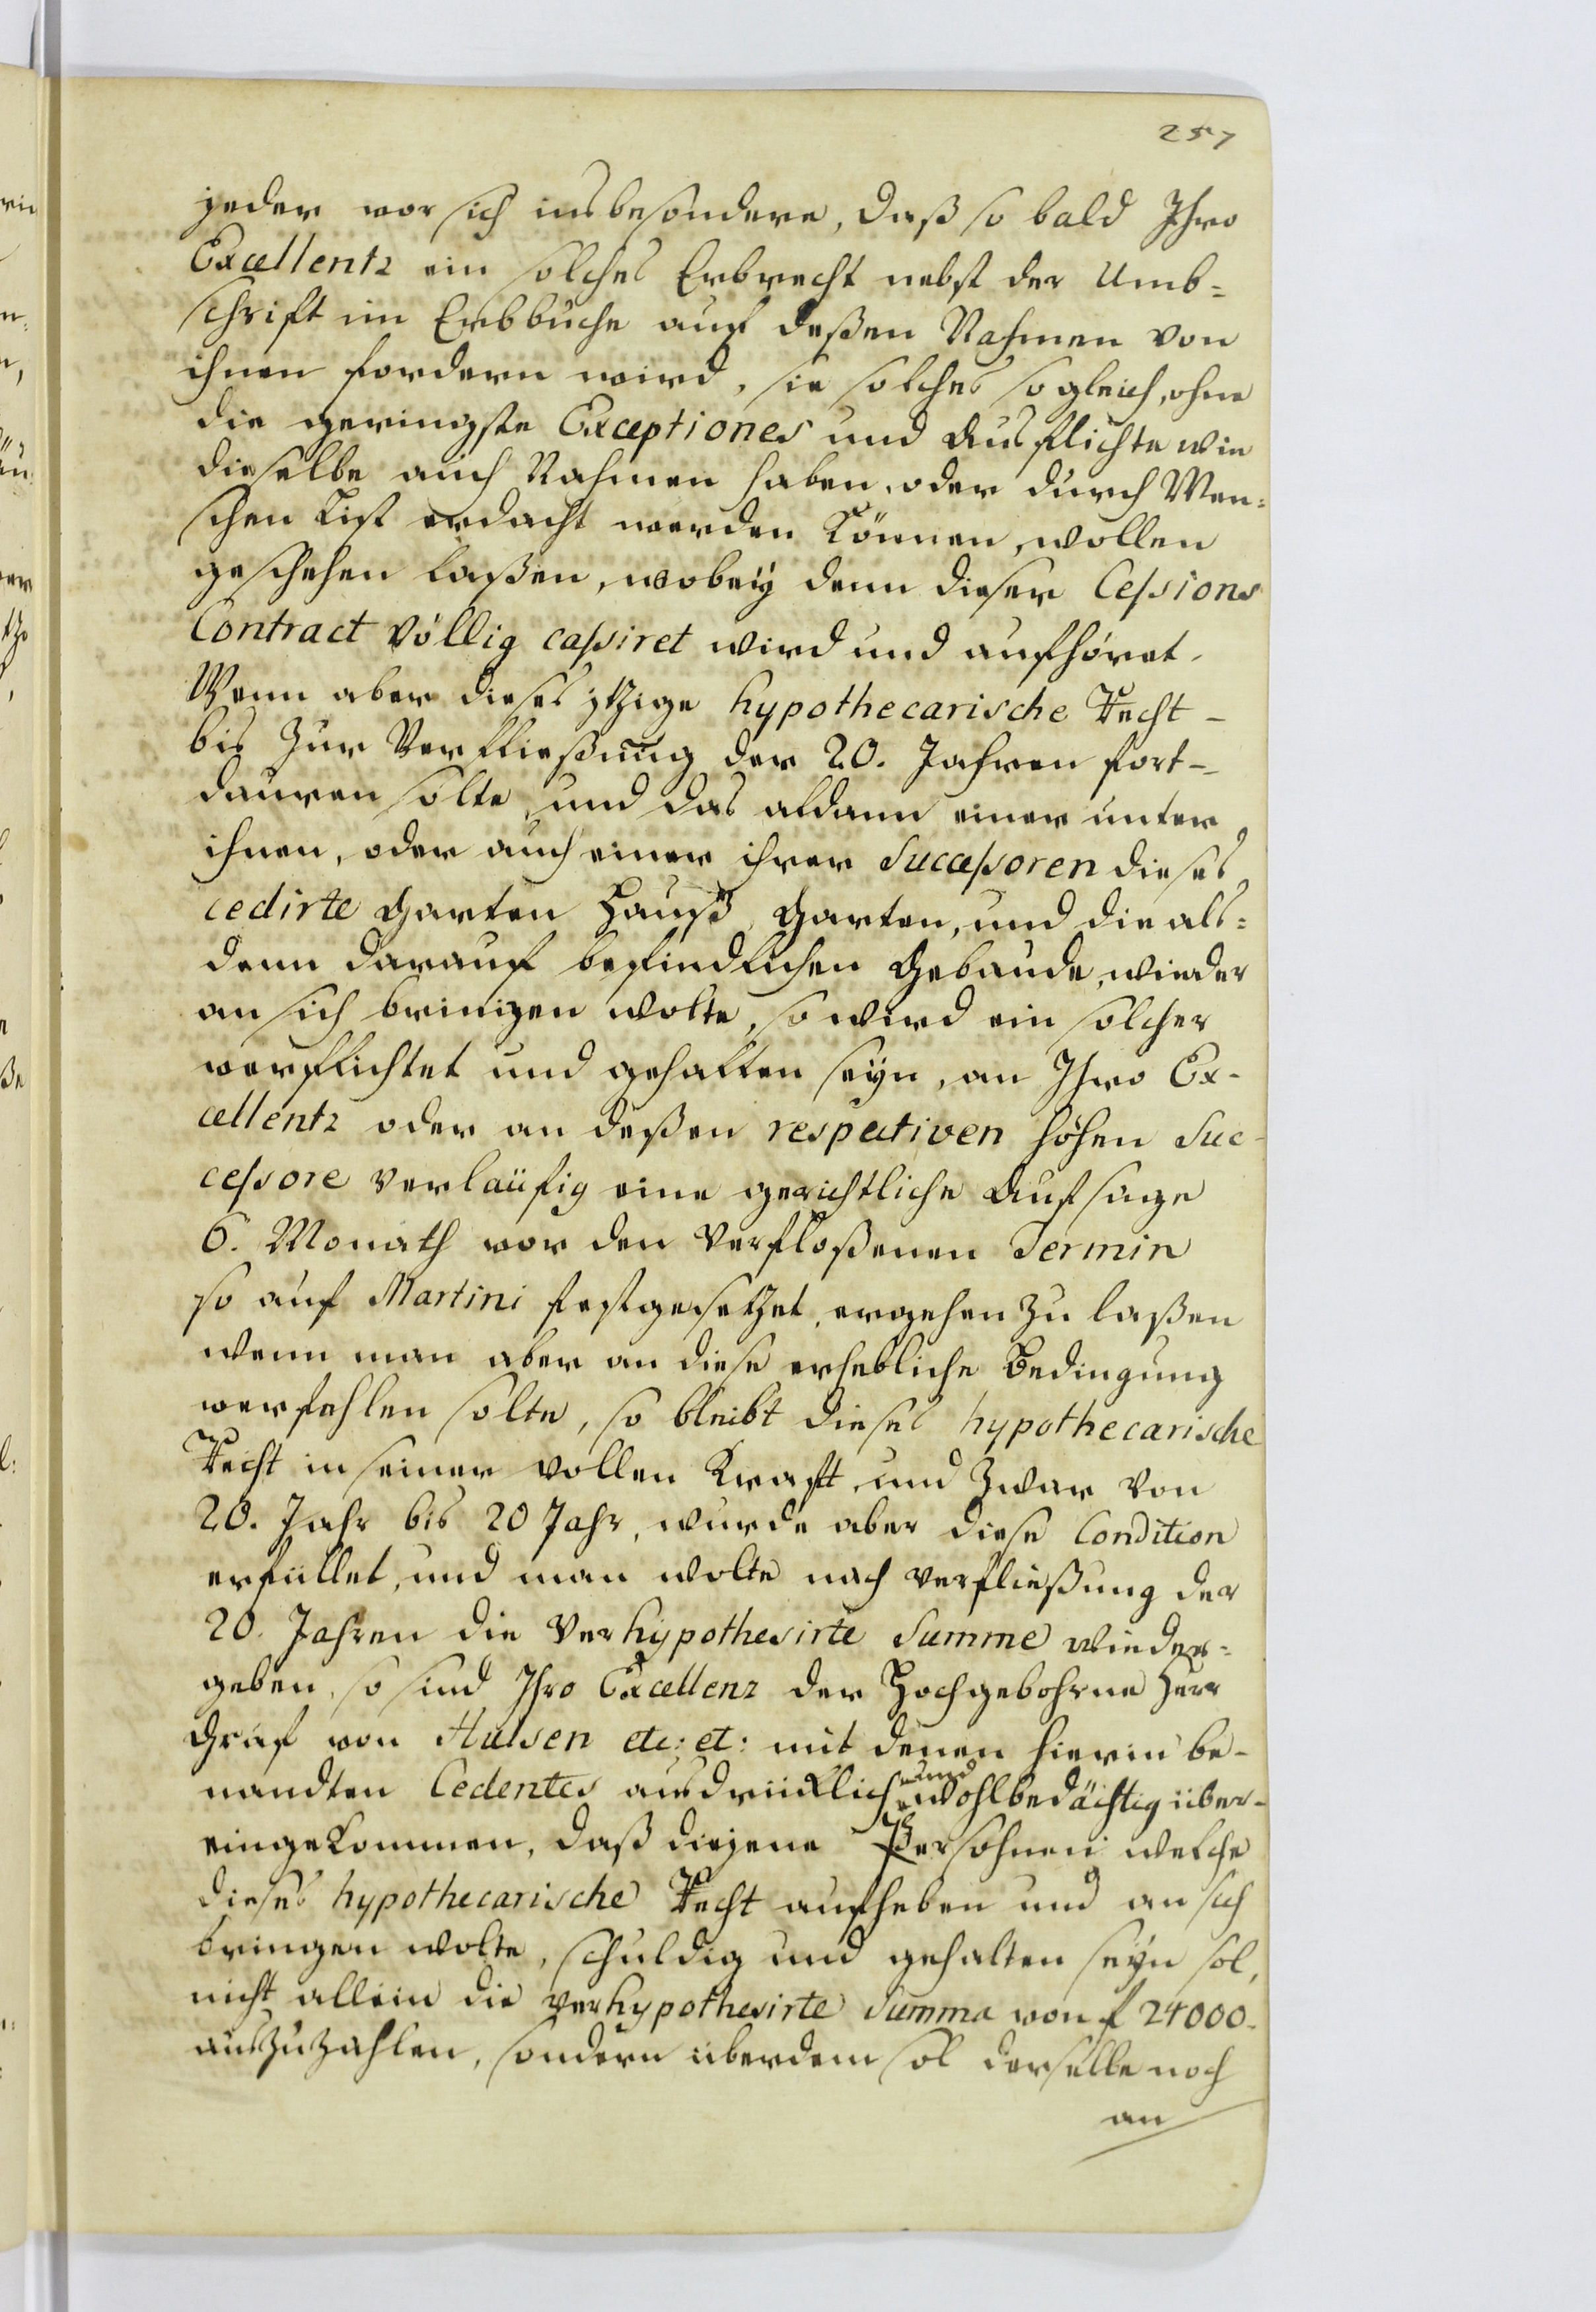 257
jeder vor sich insbesondere, daß so bald Ihro
Excellentz ein solches Erbrecht nebst der Umb=
schrift im Erbbuche auf deßen Nahmen von
ihnen fordern wird, sie solches sogleich, ohne
die geringste Exceptiones und Ausflichte wie
dieselbe auch Nahmen haben, oder durch Men=
schen List erdacht werden können, wollen
geschehen laßen, wobeÿ denn dieser Cessions
Contract völlig cassiret wird und aufhöret.
Wenn aber dieses itzige hypothecarische Recht -
bis zur Verfließung der 20. Jahren fort-
dauren solte, und das aldann einer unter
ihnen, oder auch einer ihrer Successoren dieses
cedirte Garten Hauß, Garten, und die als=
denn darauf befindlichen Gebäude, wieder
an sich bringen wolte, so wird ein solcher
verpflichtet und gehalten seÿn, an Ihro Ex-
cellentz oder an deßen respectiven hohen Suc-
cessore verläüfig eine gerichtliche Aufsage
6. Monath vor den verfloßenen Termin
so auf Martini festgesetzet, ergehen zu laßen
wenn man aber an diese erhebliche Bedingung
verfehlen solte, so bleibt dieses hypothecarische
Recht in seiner vollen Kraft, und zwar von
20. Jahr bis 20 Jahr, wurde aber diese Condition
erfüllet, und man wolte nach verfließung der
20. Jahren die verhypothesirte Summe wieder=
geben, so sind Ihro Excellenz der Hochgebohrne Herr
Graf von Hulsen etc: et: mit denen hierin be-
nandten Cedentes ausdrücklich und wohlbedächtig über-
eingekommen, daß diejene Persohnen welche
dieses hypothecarische Recht aufheben und an sich
bringen wolte, schuldig und gehalten seÿn sol,
nicht allein die verhypothesirte Summa von f 24000.
auszuzahlen, sondern überdem sol derselbe noch
an